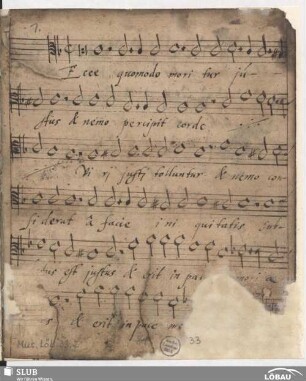 Ecce quomodo mori tur ju-
stus & nemo percipit corde
Vi ri justi tolluntur & nemo con-
siderat à facie ini quitatis sub-
tus est justus & erit in pace
s & erit in pace
Mus. Löb.
33
SLUB
Wir führen Wissen.
LÖBAU